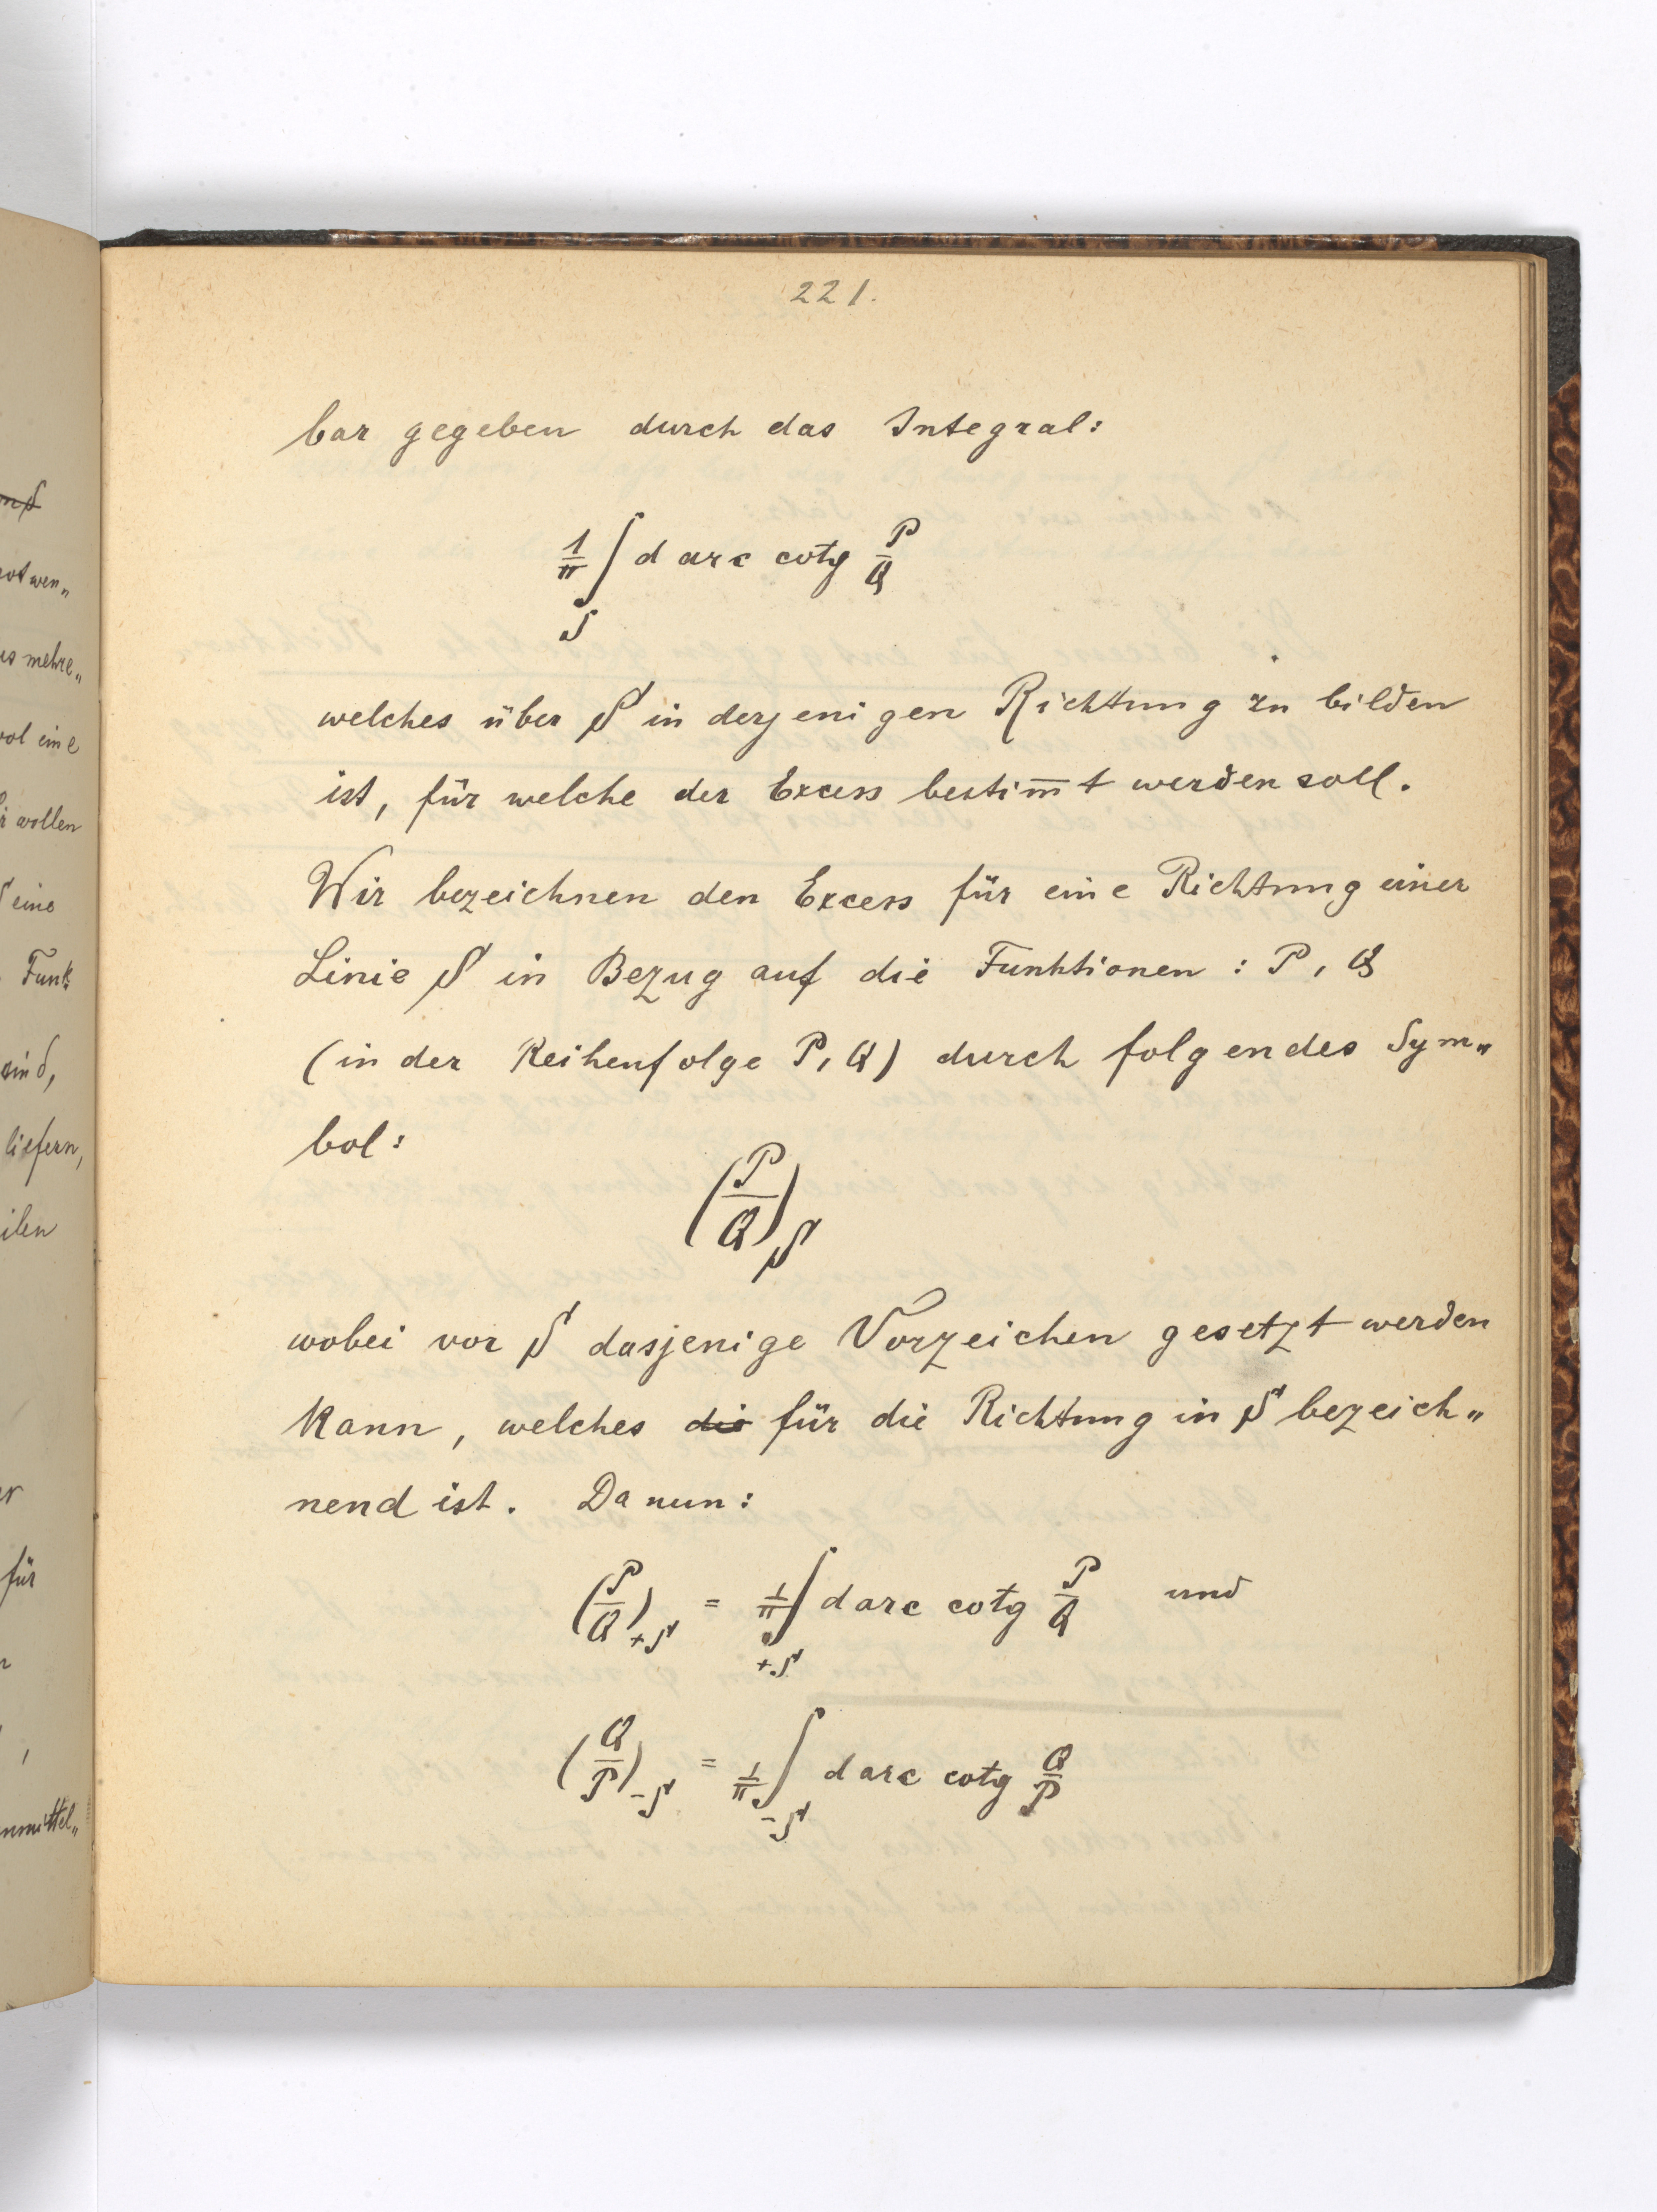 221.
bar gegeben durch das Integral:
1/π ∫_S d arc cotg P/Q
welches über S in derjenigen Richtung zu bilden
ist, für welche der Excess bestim̅t werden soll.
Wir bezeichnen den Excess für eine Richtung einer
Linie S in Bezug auf die Funktionen : P, Q
(in der Reihenfolge P, Q) durch folgendes Sym„
bol:
(P/Q)_S
wobei vor S dasjenige Vorzeichen gesetzt werden
kann, welches die für die Richtung in S bezeich„
nend ist. Da nun:
(P/Q)_+S = 1/π ∫_+S d arc cotg P/Q und
(Q/P)_-S = 1/π ∫_-S d arc cotg Q/P
mehre„
eine
wollen
eine
Funk
sind,
liefern,
für